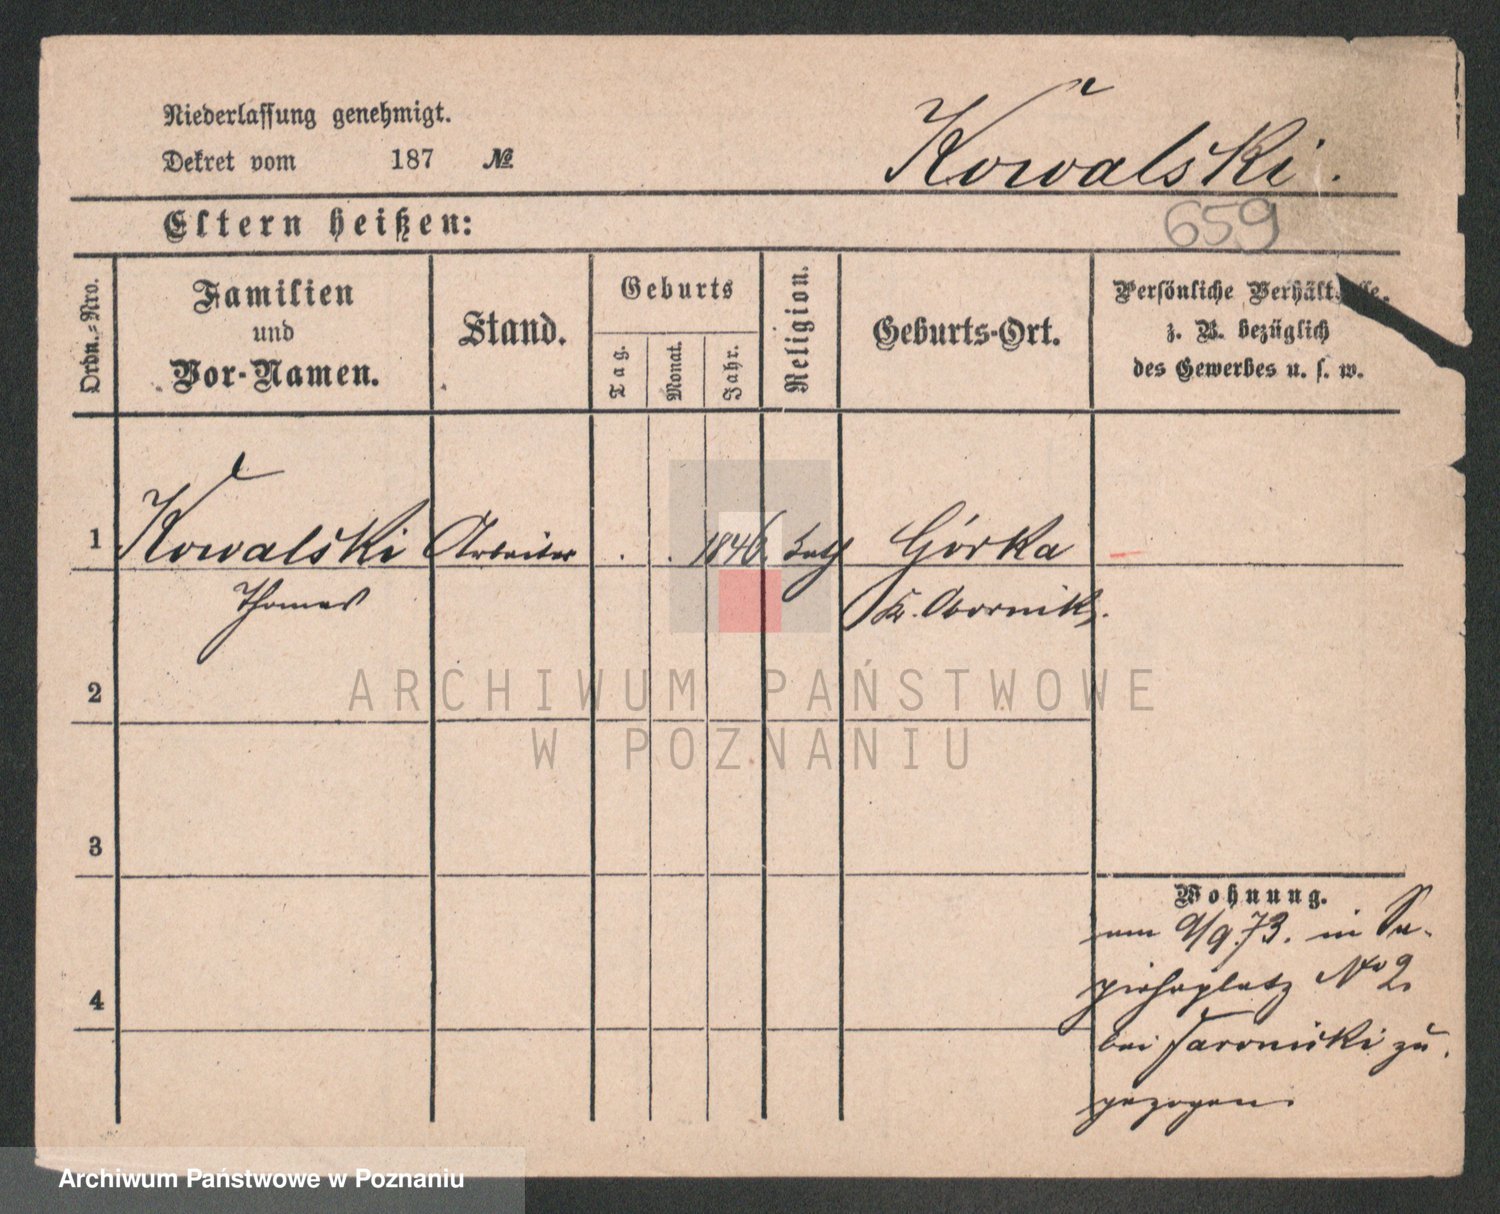 Niederlassung genehmigt.
Dekret vom 187 №
Kowalski.
659
Eltern heißen:
Ordn.-Nro.
Familien
und
Vor-Namen.
Stand.
Geburts
Tag.
Monat.
Jahr.
Religion.
Geburts-Ort.
Persönliche Verhält
z. B. bezüglich
des Gewerbes u. s. w.
1 Kowalski Arbeiter . . 1846 kath Górka
Thomas Kr. Obornik.
2
ARCHIWUM PAŃSTWOWE
W POZNANIU
3
4
Wohnung.
am 9/9.73. in Sa-
piehaplatz No 2
bei zu
gezogen.
Archiwum Państwowe w Poznaniu